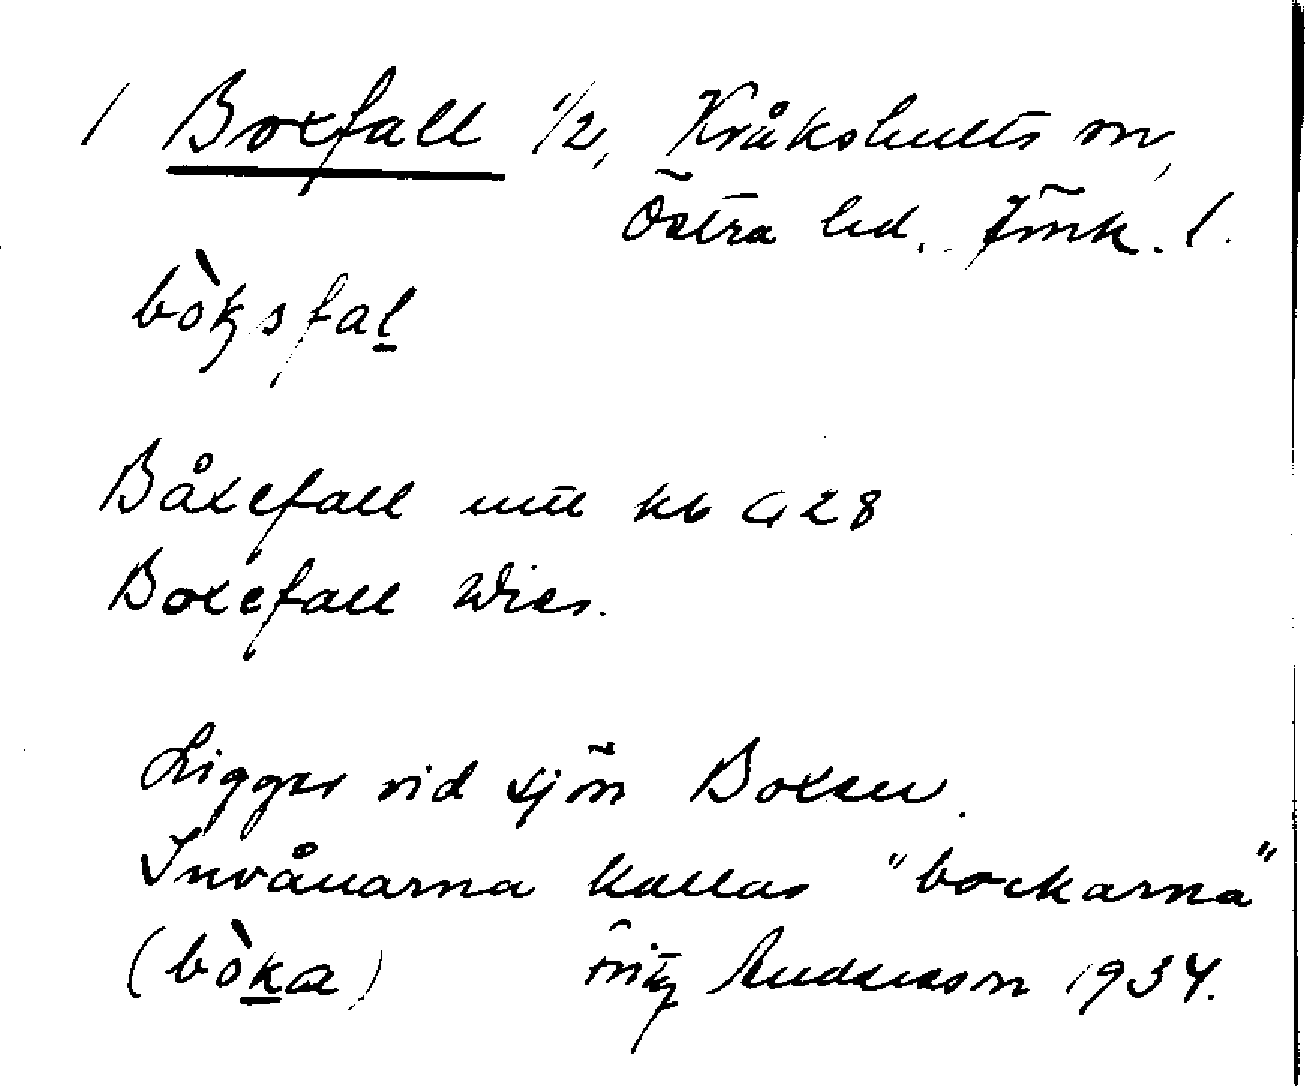 1 Boxfall 1/2, Kråkshults sn,
Östra hd. Jönk. l.
bòksfal
Båxefall kb 28
Boxefall Wies.
Ligger vid sjön Boxen.
Invånarna kallas "bockarna"
(bòka) Fritz Andersson 1934.